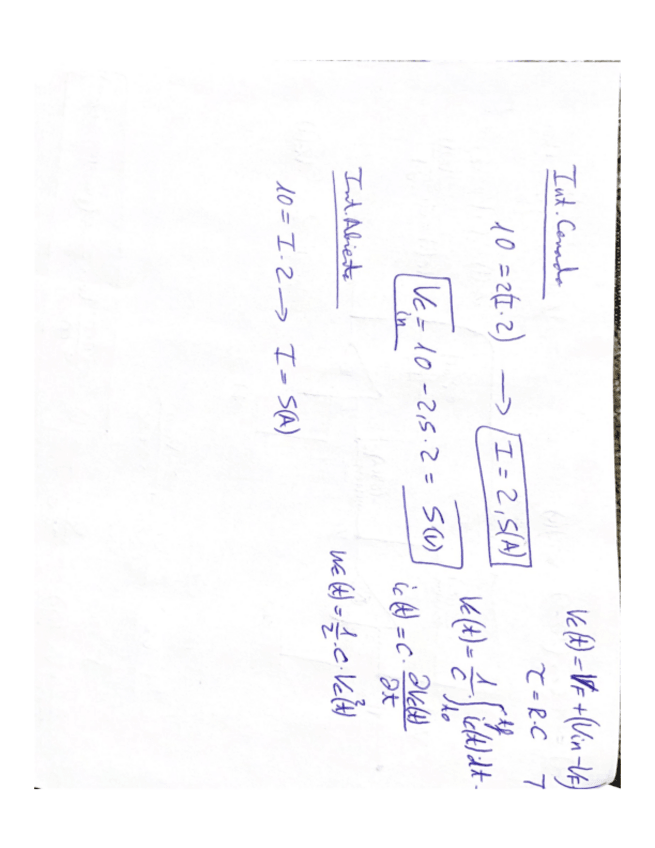 Int. Cerrado
10 = 2(I·2) → I = 2,5(A)
Vc in = 10 - 2,5·2 = 5(V)
Int. Abierto
10 = I·2 → I = 5(A)
Vc(t) = VF + (Vin - VF)
τ = R·C T
Vc(t) = 1/C · ∫ t0 tf ic(t)·dt.
ic(t) = C · ∂Vc(t)/∂t
wc(t) = 1/2 · C · Vc²(t)